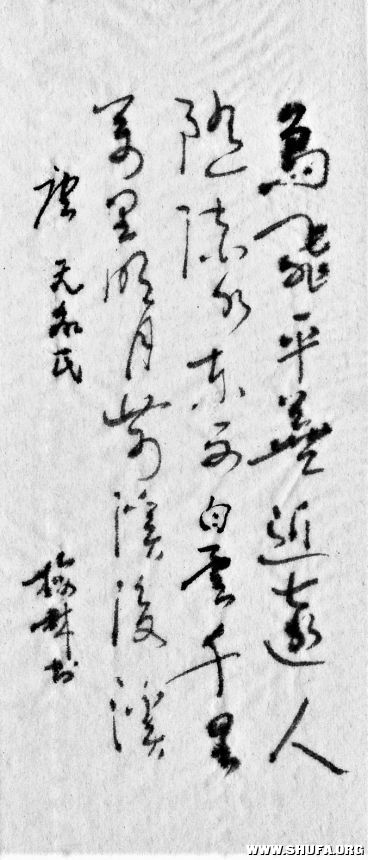 鳥飛平蕪近遠人
隨流水東西白雲千里
萬里明月前溪後溪
唐 无名氏
梅林书
WWW.SHUFA.ORG